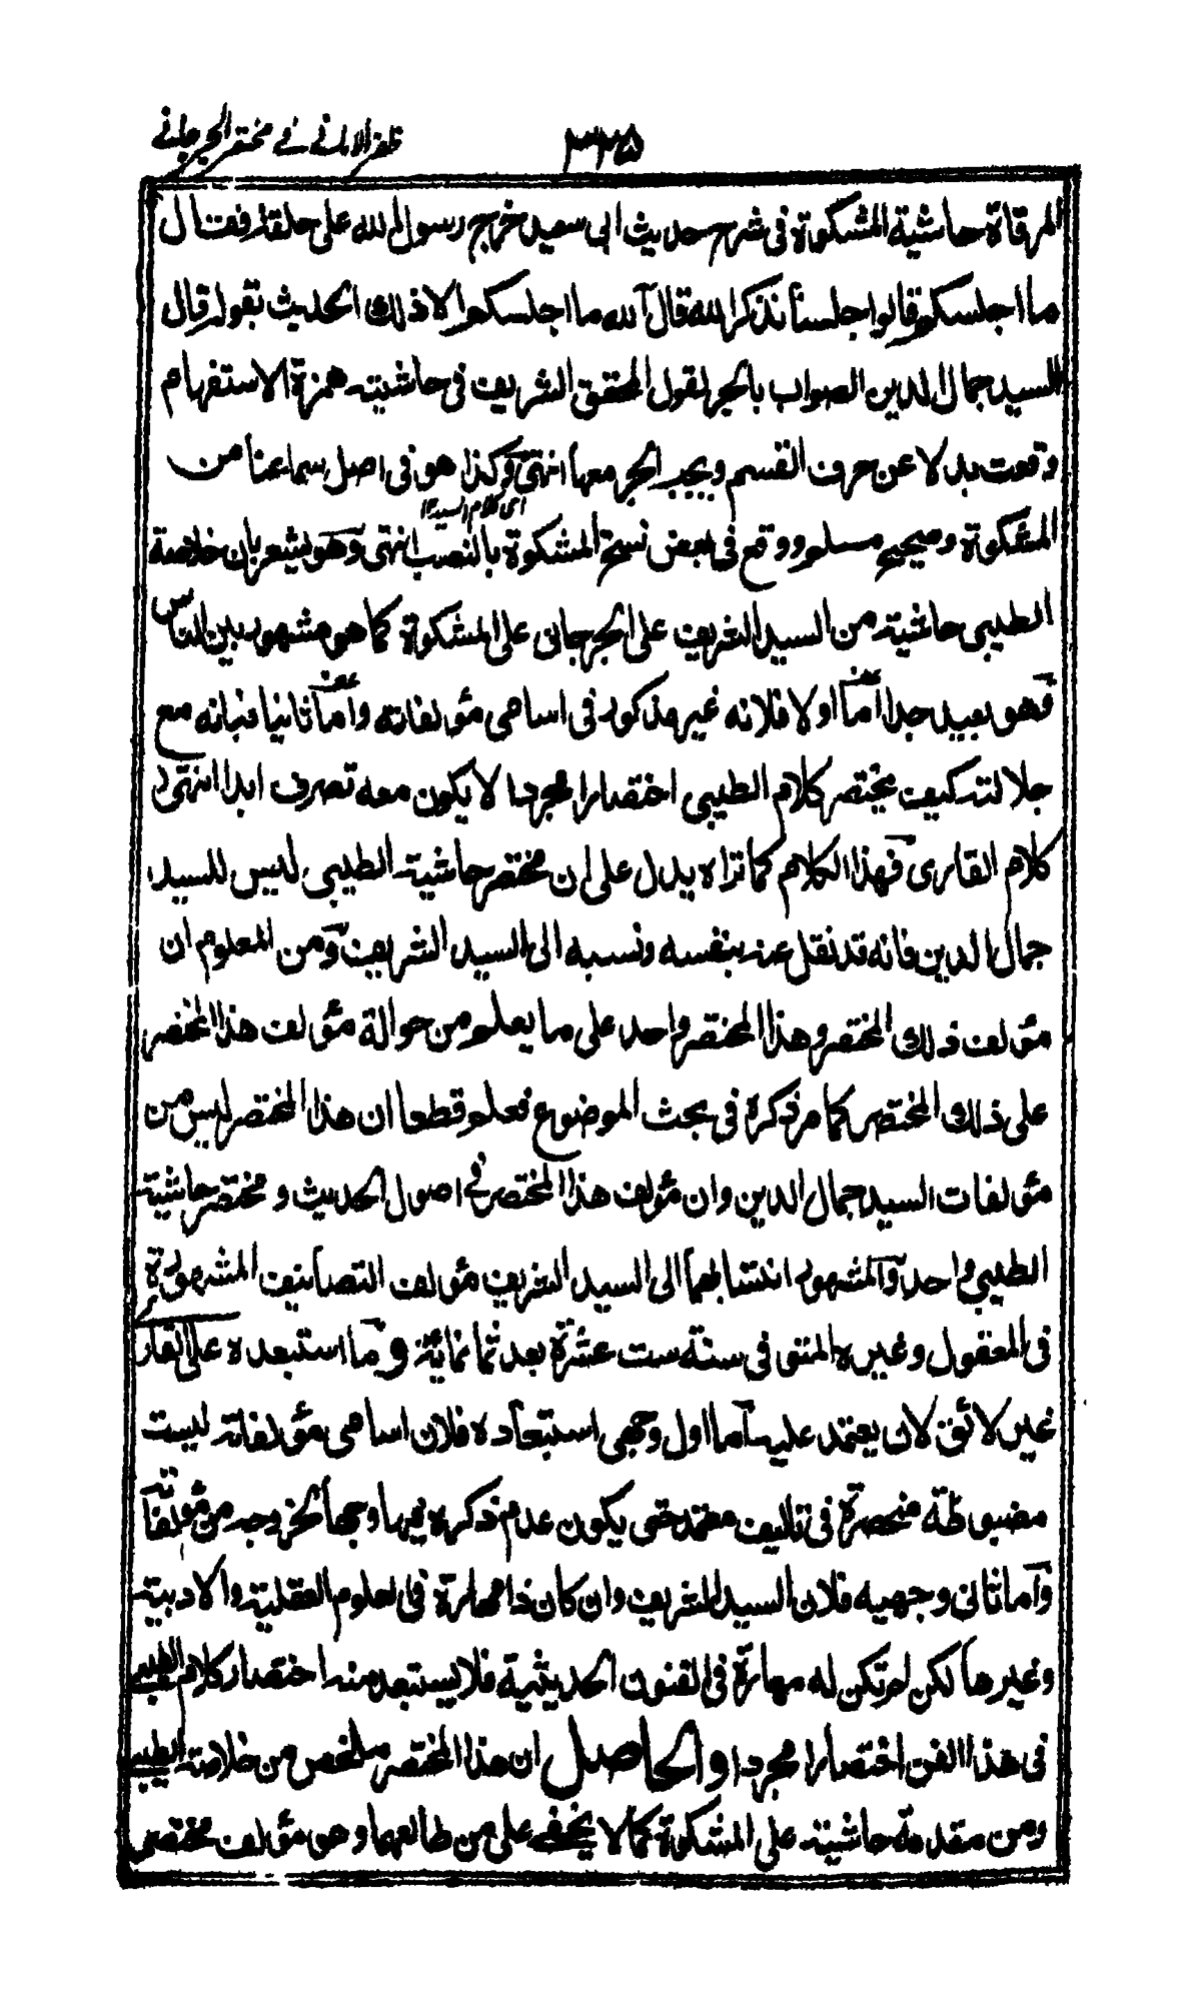 ظفر الامانے فے مختصر الجرجانے
٣٣۵
المرقاة حاشية المشكوة فى شرح حديث ابى سعيد خرج رسول الله على حلقة فقال
ما اجلسكم قالوا جلسنا نذكر الله قال آلله ما اجلسكم الا ذلك الحديث بقوله قال
السيد جمال الدين الصواب بالجر لقول المحقق الشريف فى حاشيته همزة الاستفهام
وقعت بدلا عن حرف القسم ويجب الجر معها انتهى وكذا هو فى اصل سماعنا من
اى كلام السيد ١٢
المشكوة وصحيح مسلم ووقع فى بعض نسخ المشكوة بالنصب انتهى وهو يشعر بان خلاصة
الطيبى حاشية من السيد الشريف على الجرجانى على المشكوة كما هو مشهور بين الناس
فهو بعيد جدا أما اولا فلانه غير مذكور فى اسامى مؤلفاته وأما ثانيا فبانه مع
جلالته كيف يختصر كلام الطيبى اختصارا مجردا لا يكون معه تصرف ابدا انتهى
كلام القارى فهذا الكلام كما تراه يدل على ان مختصر حاشية الطيبى ليس للسيد
جمال الدين فانه قد نقل عنه بنفسه ونسبه الى السيد الشريف ومن المعلوم ان
مؤلف ذلك المختصر وهذا المختصر واحد على ما يعلم من حوالة مؤلف هذا المختصر
على ذلك المختصر كما مر ذكره فى بحث الموضوع فعلم قطعا ان هذا المختصر ليس من
مؤلفات السيد جمال الدين وان مؤلف هذا المختصر فى اصول الحديث ومختصر حاشية
الطيبى واحد والمشهور انتسابهما الى السيد الشريف مؤلف التصانيف المشهورة
فى المعقول وغيره المتوفى فى سنة ست عشرة بعد ثمانمائة وما استبعده على القارى
غير لائق لان يعتمد عليه أما اول وجهى استبعاده فلان اسامى مؤلفاته ليست
مضبوطة منحصرة فى تاليف معتمد حتى يكون عدم ذكره فيها وجها لخروجه من مؤلفاته
وأما ثانى وجهيه فلان السيد الشريف وان كان ذا مهارة فى العلوم العقلية والادبية
وغيرها لكن لم تكن له مهارة فى الفنون الحديثية فلا يستبعد منه اختصار كلام الطيبى
فى هذا الفن اختصارا مجردا والحاصل ان هذا المختصر ملخص من خلاصة الطيبى
ومن مقدمة حاشيته على المشكوة كما لا يخفى على من طالعهما وهو مؤلف مختصر